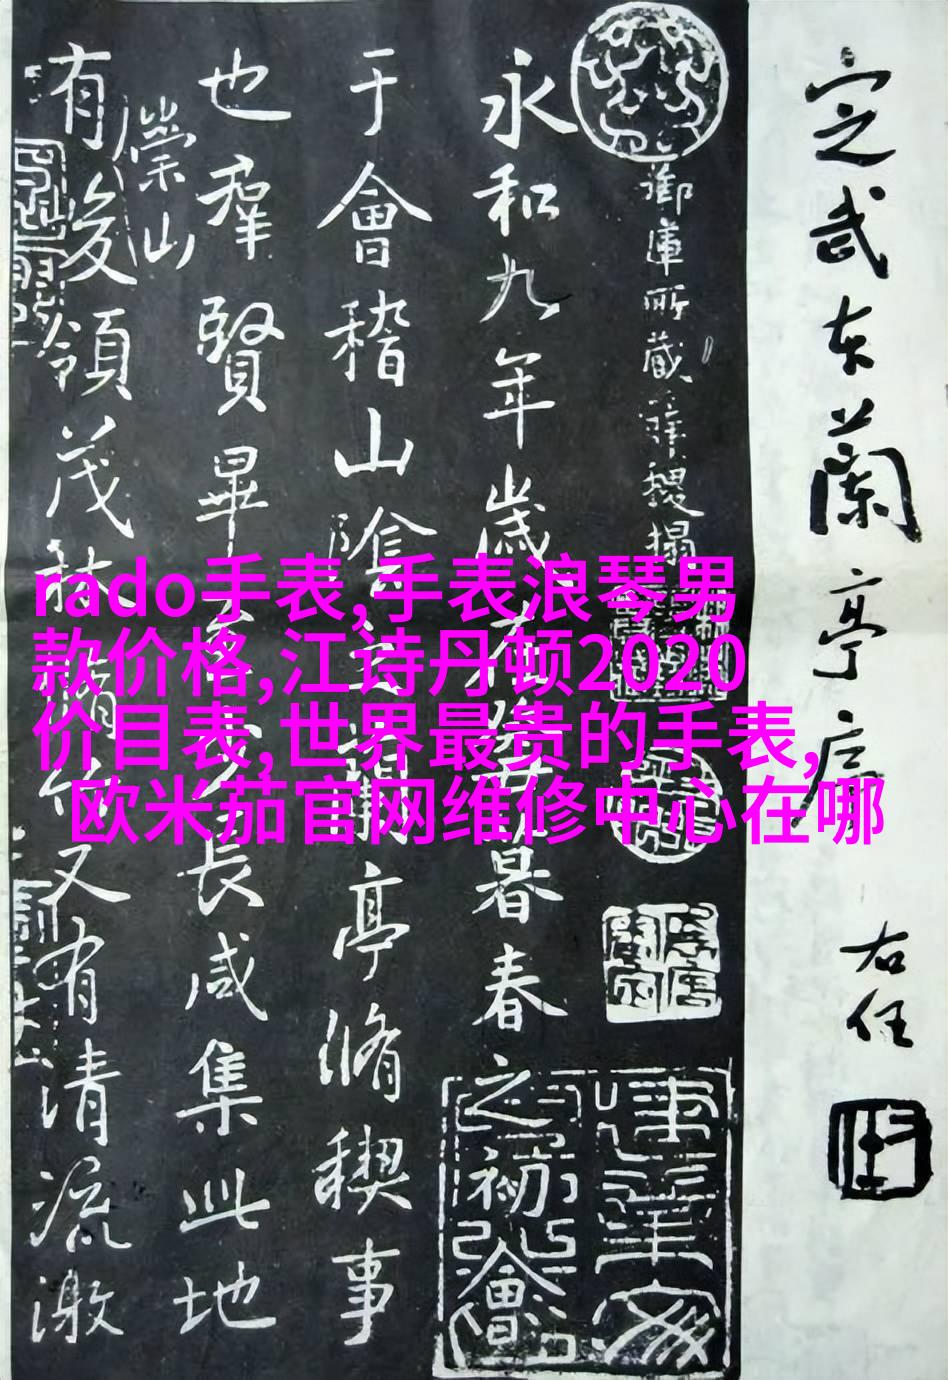 定武本蘭亭序
右任
御庫所藏薛稷搨
永和九年歲在癸丑暮春之初會
于會稽山陰之蘭亭脩稧事
也羣賢畢至少長咸集此地
崇山
有峻領茂林脩竹又有清流激
rado手表,手表浪琴男
款价格,江诗丹顿2020
价目表,世界最贵的手表,
欧米茄官网维修中心在哪